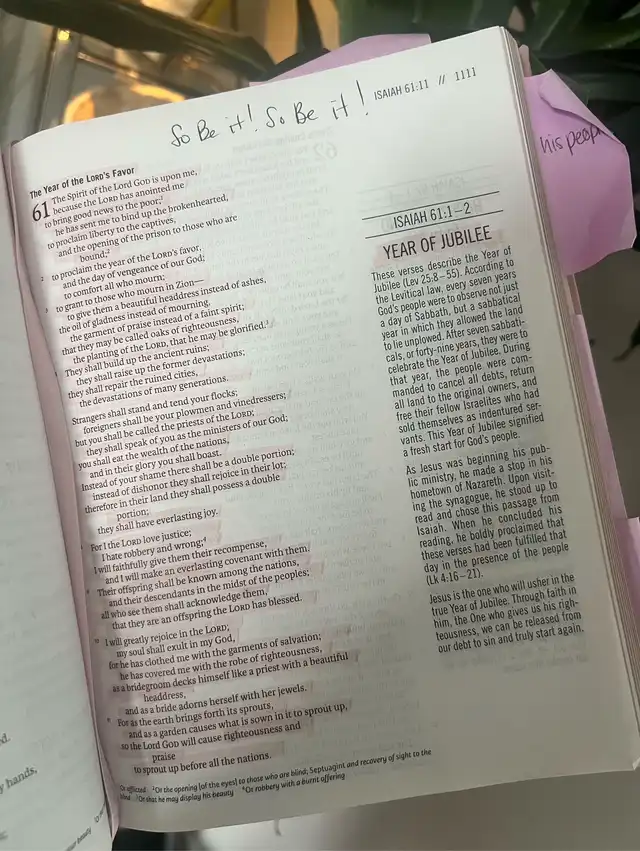 So Be it! So Be it!
ISAIAH 61:11 // 1111
his people
The Year of the LORD's Favor
61 The Spirit of the Lord GOD is upon me,
because the LORD has anointed me
to bring good news to the poor;
he has sent me to bind up the brokenhearted,
to proclaim liberty to the captives,
and the opening of the prison to those who are
bound;
2 to proclaim the year of the LORD's favor,
and the day of vengeance of our God;
to comfort all who mourn;
3 to grant to those who mourn in Zion—
to give them a beautiful headdress instead of ashes,
the oil of gladness instead of mourning,
the garment of praise instead of a faint spirit;
that they may be called oaks of righteousness,
the planting of the LORD, that he may be glorified.
They shall build up the ancient ruins;
they shall raise up the former devastations;
they shall repair the ruined cities,
the devastations of many generations.
Strangers shall stand and tend your flocks;
foreigners shall be your plowmen and vinedressers;
but you shall be called the priests of the LORD;
they shall speak of you as the ministers of our God;
you shall eat the wealth of the nations,
and in their glory you shall boast.
Instead of your shame there shall be a double portion;
instead of dishonor they shall rejoice in their lot;
therefore in their land they shall possess a double
portion;
they shall have everlasting joy.
For I the LORD love justice;
I hate robbery and wrong;⁴
I will faithfully give them their recompense,
and I will make an everlasting covenant with them.
Their offspring shall be known among the nations,
and their descendants in the midst of the peoples;
all who see them shall acknowledge them,
that they are an offspring the LORD has blessed.
10 I will greatly rejoice in the LORD;
my soul shall exult in my God,
for he has clothed me with the garments of salvation;
he has covered me with the robe of righteousness,
as a bridegroom decks himself like a priest with a beautiful
headdress,
and as a bride adorns herself with her jewels.
For as the earth brings forth its sprouts,
and as a garden causes what is sown in it to sprout up,
so the Lord GOD will cause righteousness and
praise
to sprout up before all the nations.
Or afflicted ²Or the opening [of the eyes] to those who are blind; Septuagint and recovery of sight to the
blind ³Or that he may display his beauty ⁴Or robbery with a burnt offering
ISAIAH 61:1–2
YEAR OF JUBILEE
These verses describe the Year of
Jubilee (Lev 25:8–55). According to
the Levitical law, every seven years
God's people were to observe not just
a day of Sabbath, but a sabbatical
year in which they allowed the land
to lie unplowed. After seven sabbati-
cals, or forty-nine years, they were to
celebrate the Year of Jubilee. During
that year, the people were com-
manded to cancel all debts, return
all land to the original owners, and
free their fellow Israelites who had
sold themselves as indentured ser-
vants. This Year of Jubilee signified
a fresh start for God's people.
As Jesus was beginning his pub-
lic ministry, he made a stop in his
hometown of Nazareth. Upon visit-
ing the synagogue, he stood up to
read and chose this passage from
Isaiah. When he concluded his
reading, he boldly proclaimed that
these verses had been fulfilled that
day in the presence of the people
(Lk 4:16–21).
Jesus is the one who will usher in the
true Year of Jubilee. Through faith in
him, the One who gives us his righ-
teousness, we can be released from
our debt to sin and truly start again.
hands,